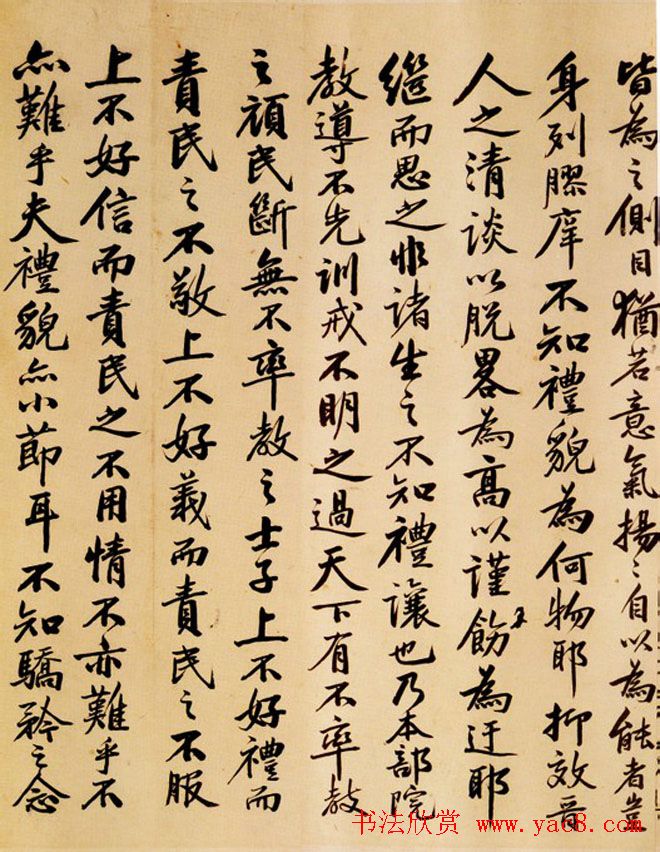 皆為之側目猶若意氣揚之自以為能者豈
身列膠庠不知禮貌為何物耶抑效晉
人之清談以脱畧為高以謹飭為迂耶
繼而思之非諸生之不知禮讓也乃本部院
教導不先訓戒不明之過天下有不率教
之頑民斷無不率教之士子上不好禮而
責民之不敬上不好義而責民之不服
上不好信而責民之不用情不亦難乎不
亦難乎夫禮貌亦小節耳不知驕矜之念
书法欣赏 www.yac8.com